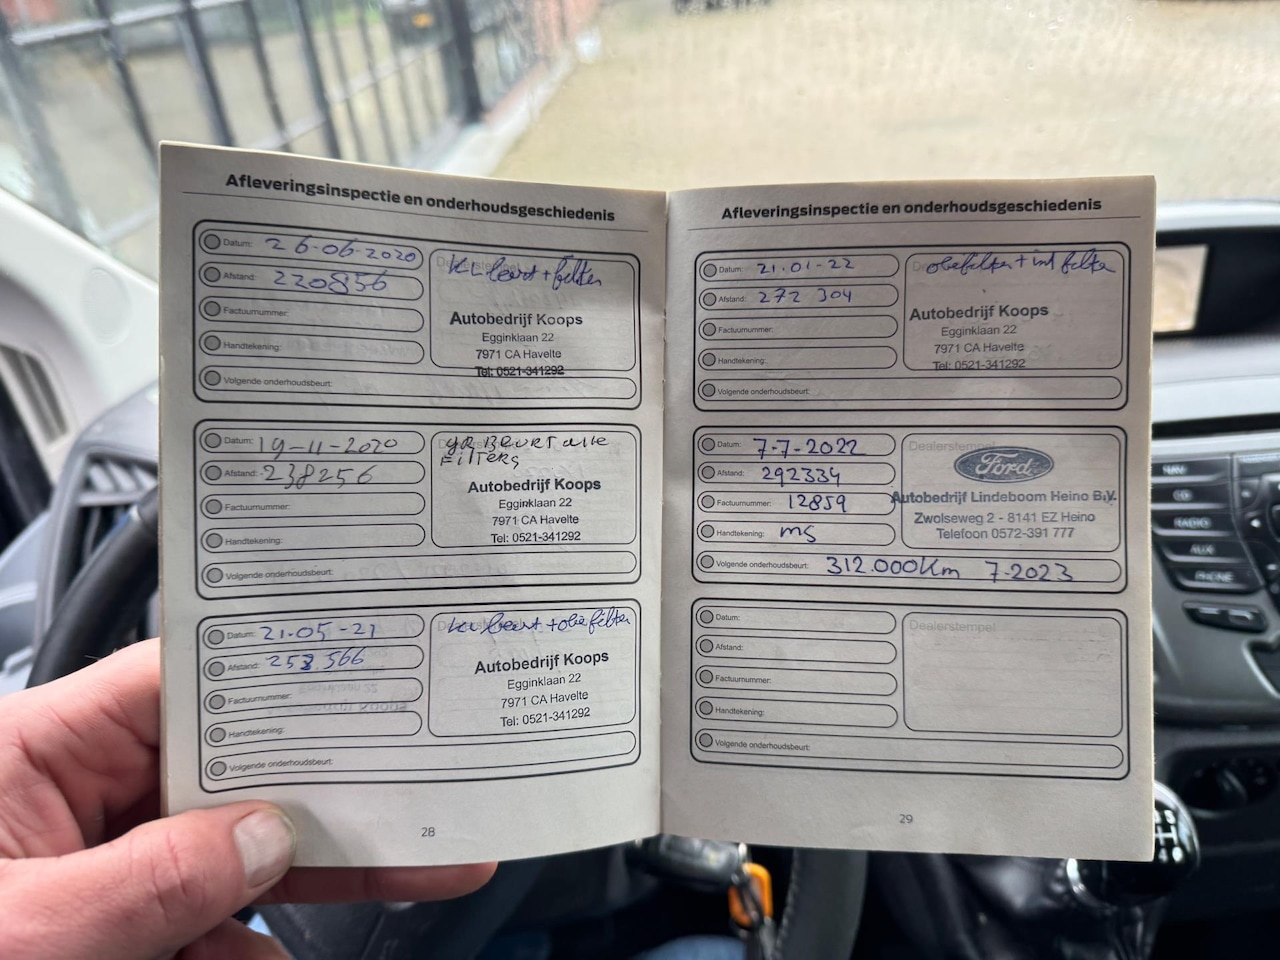 Afleveringsinspectie en onderhoudsgeschiedenis
Datum: 26-06-2020
Afstand: 220856
Factuurnummer:
Handtekening:
Volgende onderhoudsbeurt:
KL beurt + filter
Autobedrijf Koops
Egginklaan 22
7971 CA Havelte
Tel: 0521-341292
Datum: 19-11-2020
Afstand: 238256
Factuurnummer:
Handtekening:
Volgende onderhoudsbeurt:
gR BEURT alle
FilTERS
Autobedrijf Koops
Egginklaan 22
7971 CA Havelte
Tel: 0521-341292
Datum: 21-05-21
Afstand: 253.566
Factuurnummer:
Handtekening:
Volgende onderhoudsbeurt:
KL beurt + olie filter
Autobedrijf Koops
Egginklaan 22
7971 CA Havelte
Tel: 0521-341292
28
Afleveringsinspectie en onderhoudsgeschiedenis
Datum: 21-01-22
Afstand: 272 304
Factuurnummer:
Handtekening:
Volgende onderhoudsbeurt:
olie filter + int filter
Autobedrijf Koops
Egginklaan 22
7971 CA Havelte
Tel: 0521-341292
Datum: 7-7-2022
Afstand: 292334
Factuurnummer: 12859
Handtekening: ms
Volgende onderhoudsbeurt: 312.000km 7-2023
Dealerstempel
Ford
Autobedrijf Lindeboom Heino B.V.
Zwolseweg 2 - 8141 EZ Heino
Telefoon 0572-391 777
Datum:
Afstand:
Factuurnummer:
Handtekening:
Volgende onderhoudsbeurt:
Dealerstempel
29
CD
RADIO
AUX
PHONE